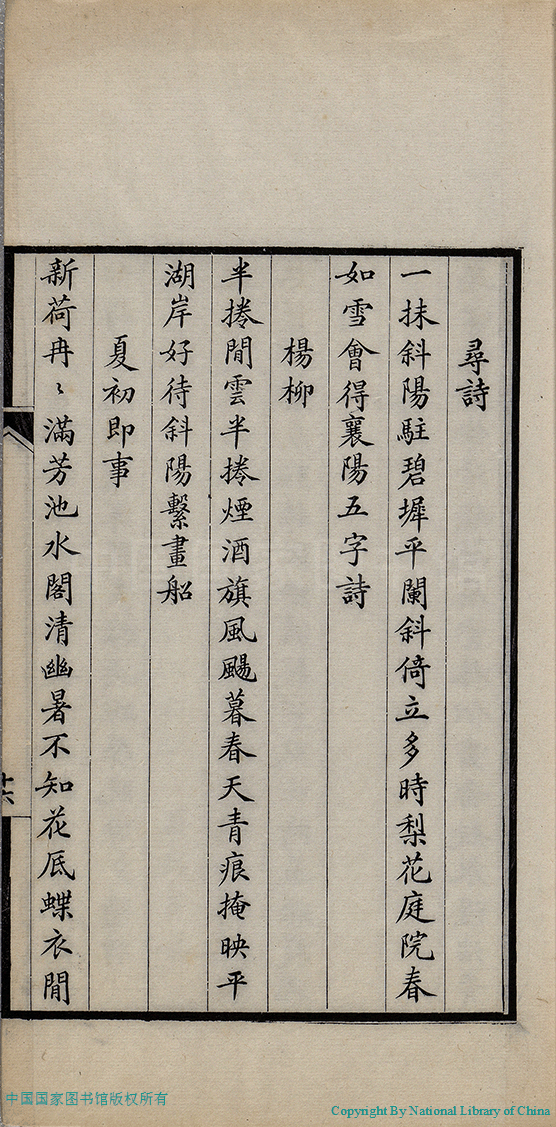 尋詩
一抹斜陽駐碧墀平闌斜倚立多時梨花庭院春
如雪會得襄陽五字詩
楊柳
半捲閒雲半捲煙酒旗風颺暮春天青痕掩映平
湖岸好待斜陽繫畫船
夏初即事
新荷冉〻滿芳池水閣清幽暑不知花底蝶衣閒
十六
中国国家图书馆版权所有
Copyright By National Library of China